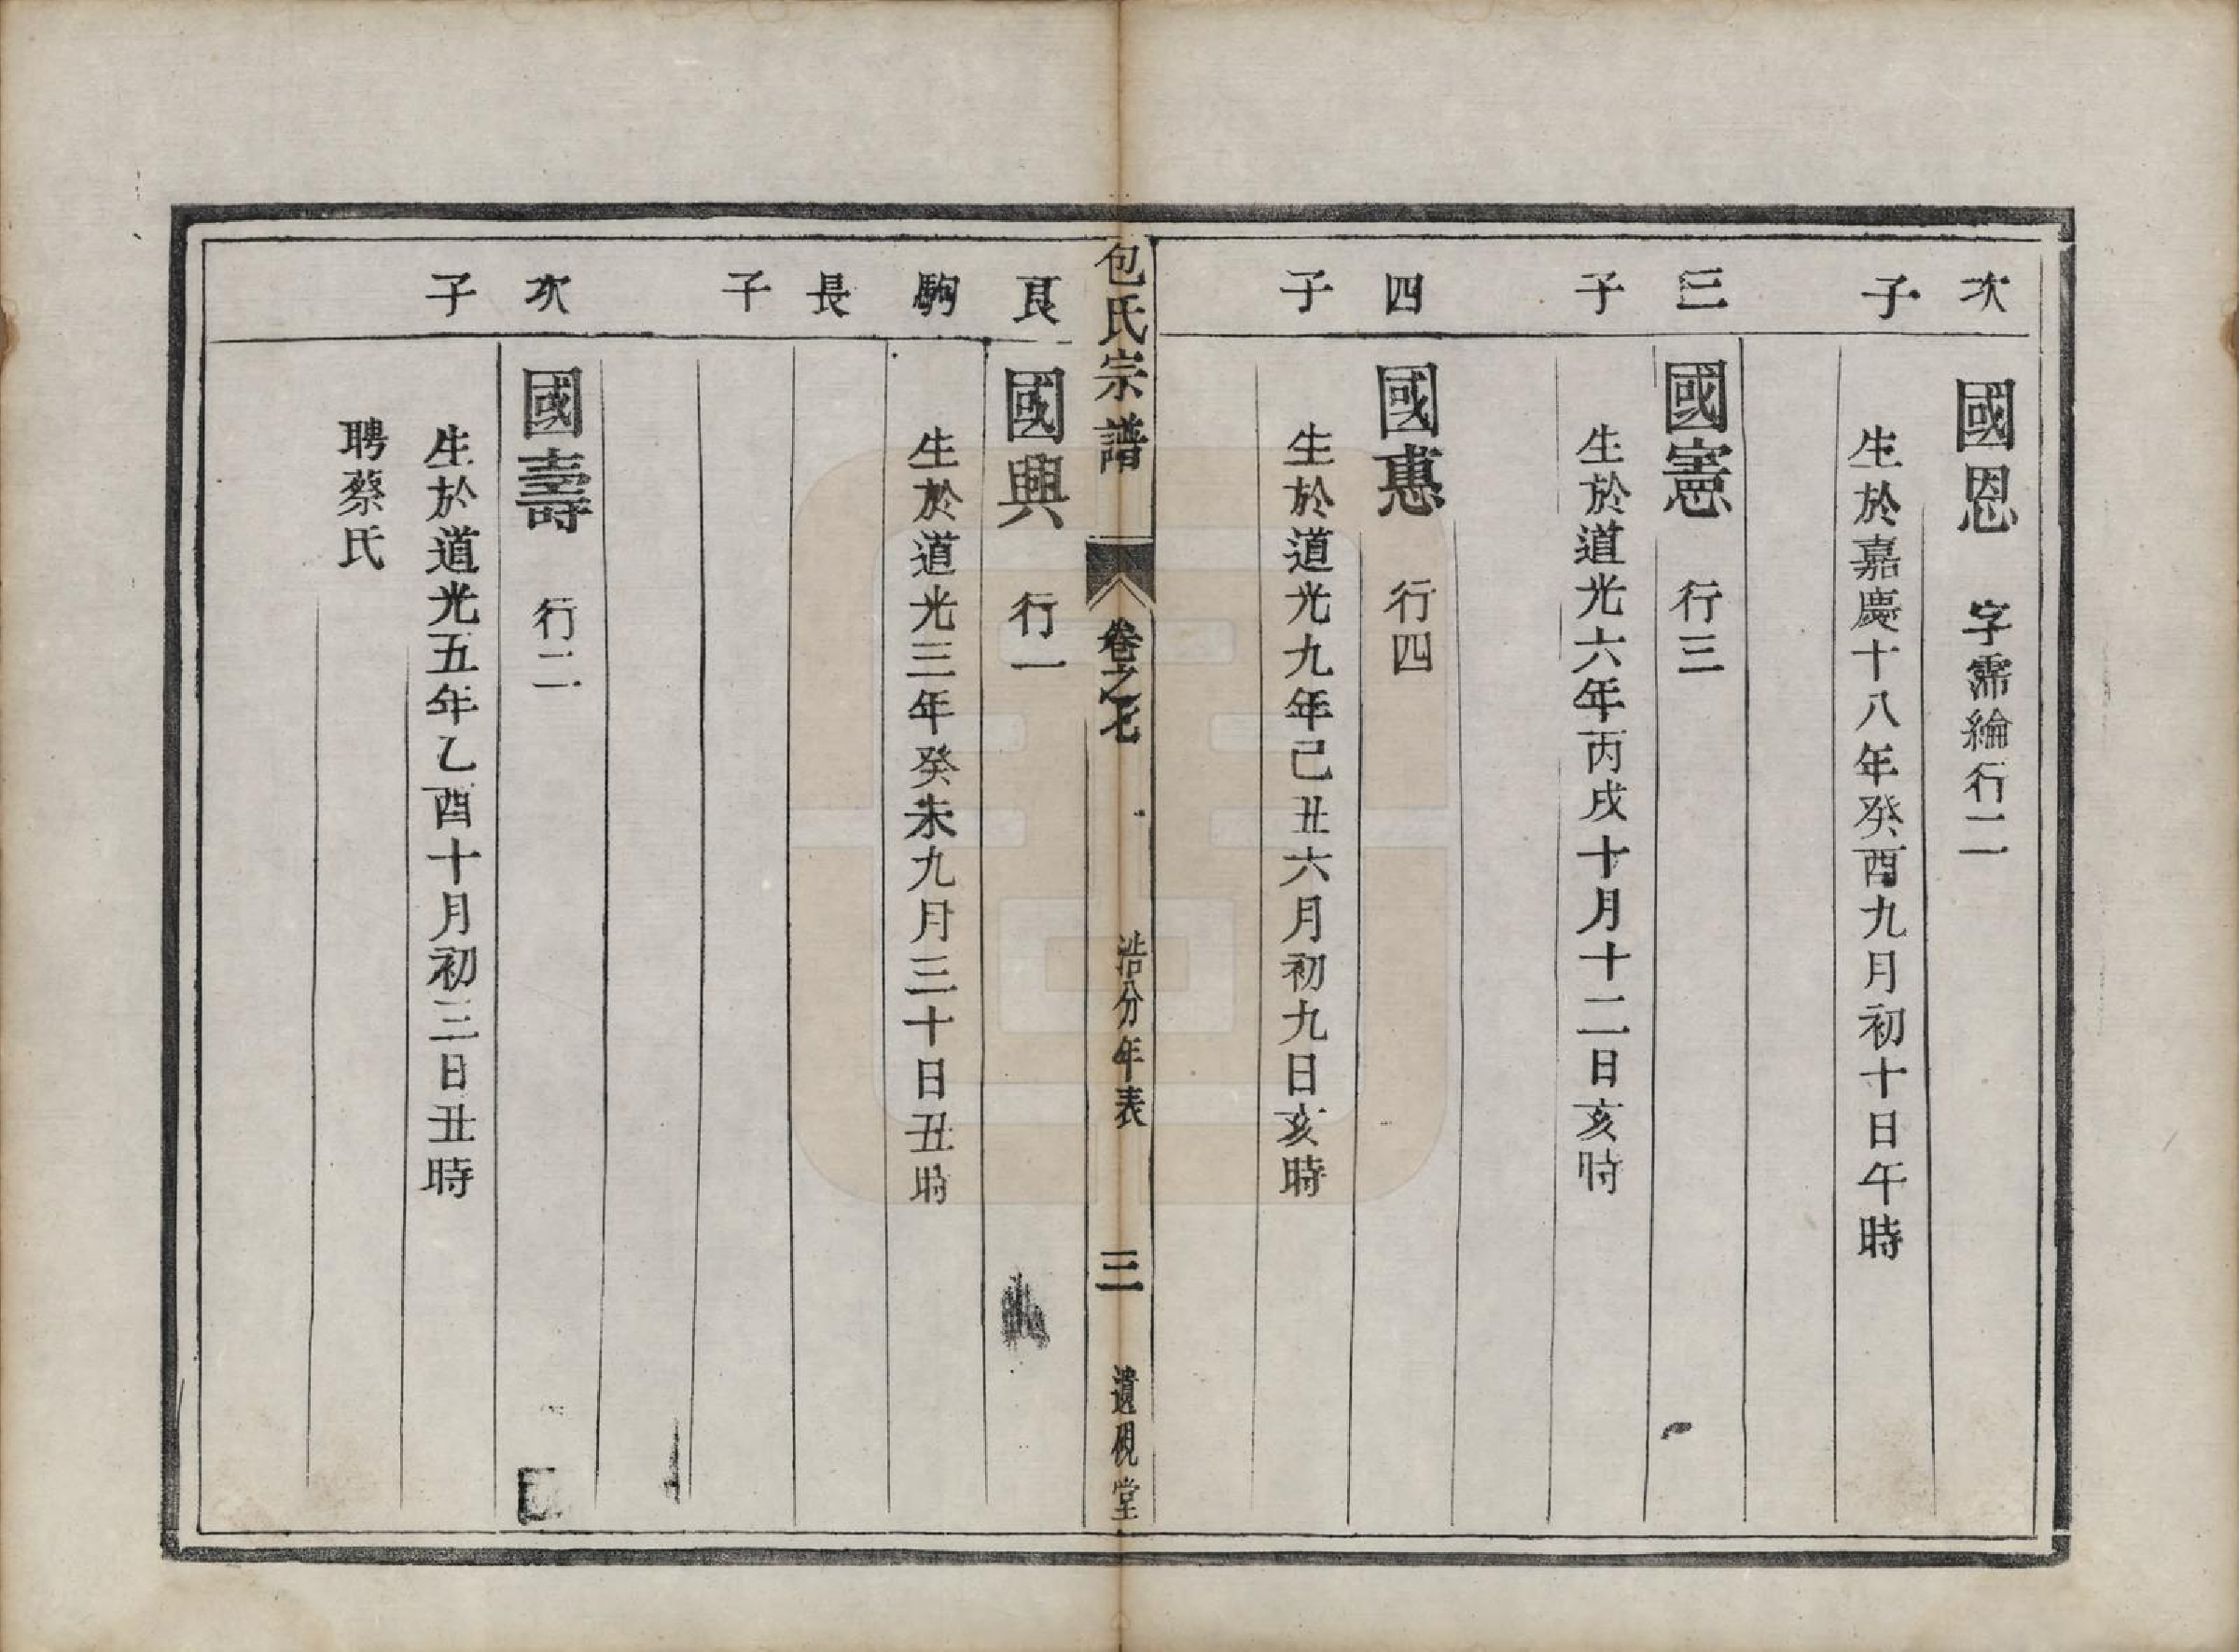 次子
國恩　字霈綸行二
生於嘉慶十八年癸酉九月初十日午時
三子
國憲　行三
生於道光六年丙戌十月十二日亥時
四子
國惠　行四
生於道光九年己丑六月初九日亥時
包氏宗譜　卷之七　浩分年表　三　遺硯堂
良駒長子
國興　行一
生於道光三年癸未九月三十日丑時
次子
國壽　行二
生於道光五年乙酉十月初三日丑時
聘蔡氏